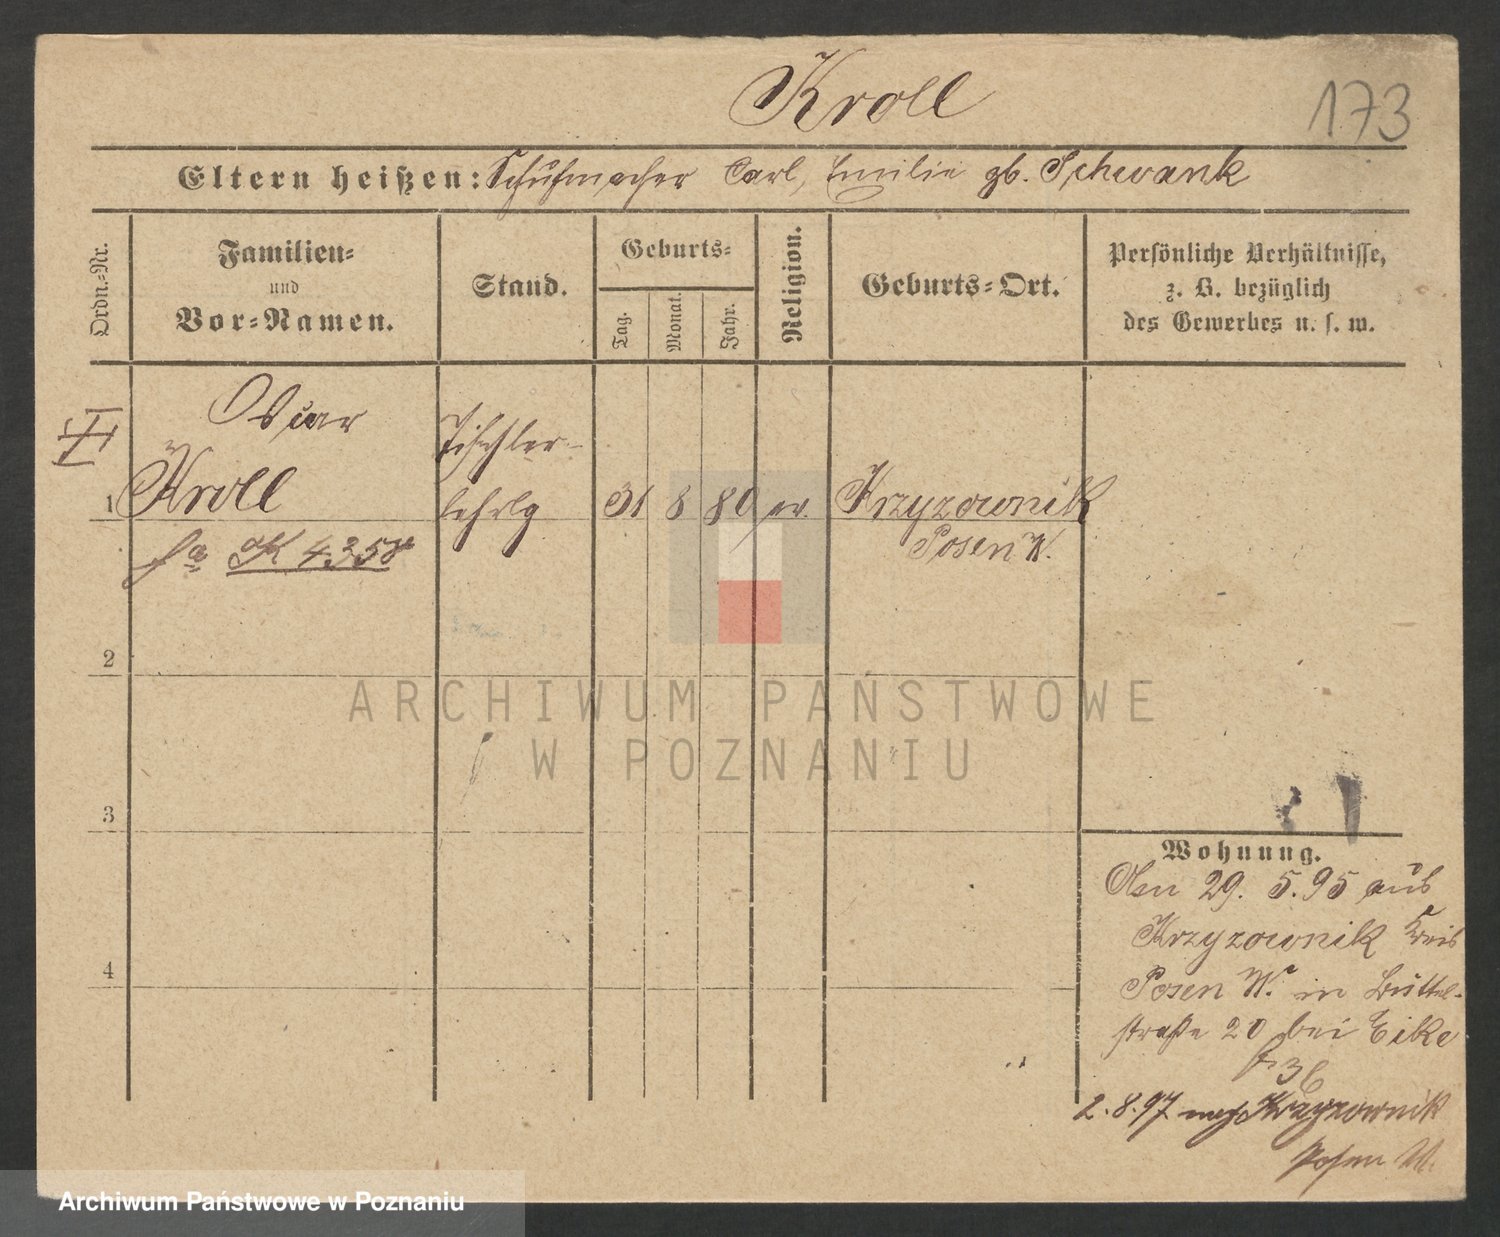 Kroll
173
Eltern heißen: Schuhmacher Carl, Emilie gb. Schwank
Ordn.-Nr.
Familien-
und
Vor-Namen.
Stand.
Geburts-
Tag.
Monat.
Jahr.
Religion.
Geburts-Ort.
Persönliche Verhältnisse,
z. B. bezüglich
des Gewerbes u. s. w.
Oscar
Tischler-
1 Kroll lehrlg 31 8 80 ev. Krzyzownik
Posen W.
K 4358
2
3
4
ARCHIWUM PAŃSTWOWE
W POZNANIU
Wohnung.
Den 29. 5.95 aus
Krzyzownik Kreis
Posen W. in Büttel-
straße 20 bei Eike
2.8.97 nach Krzyzownik
Posen W.
Archiwum Państwowe w Poznaniu